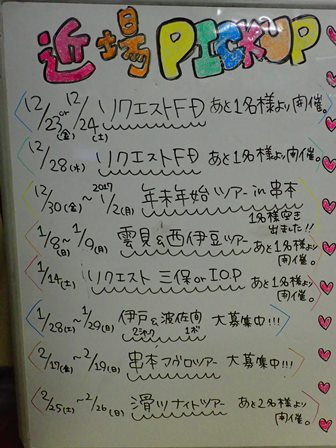 近場 PICKUP
12/23(金) or 12/24(土) リクエストFD あと1名様より開催。
12/28(水) リクエストFD あと1名様より開催。
12/30(金)~2017 1/2(月) 年末年始ツアー in 串本 1名様空き
出ました!!
1/8(日)~1/9(月) 雲見&西伊豆ツアー あと1名様より
開催。
1/14(土) リクエスト 三保 or IOP あと1名様より
開催。
1/28(土)~1/29(日) 伊戸&波佐間 大募集中!!!
1ボ
2/17(金)~2/19(日) 串本マグロツアー 大募集中!!!
2/25(土)~2/26(日) 滑川ナイトツアー あと2名様より
開催。